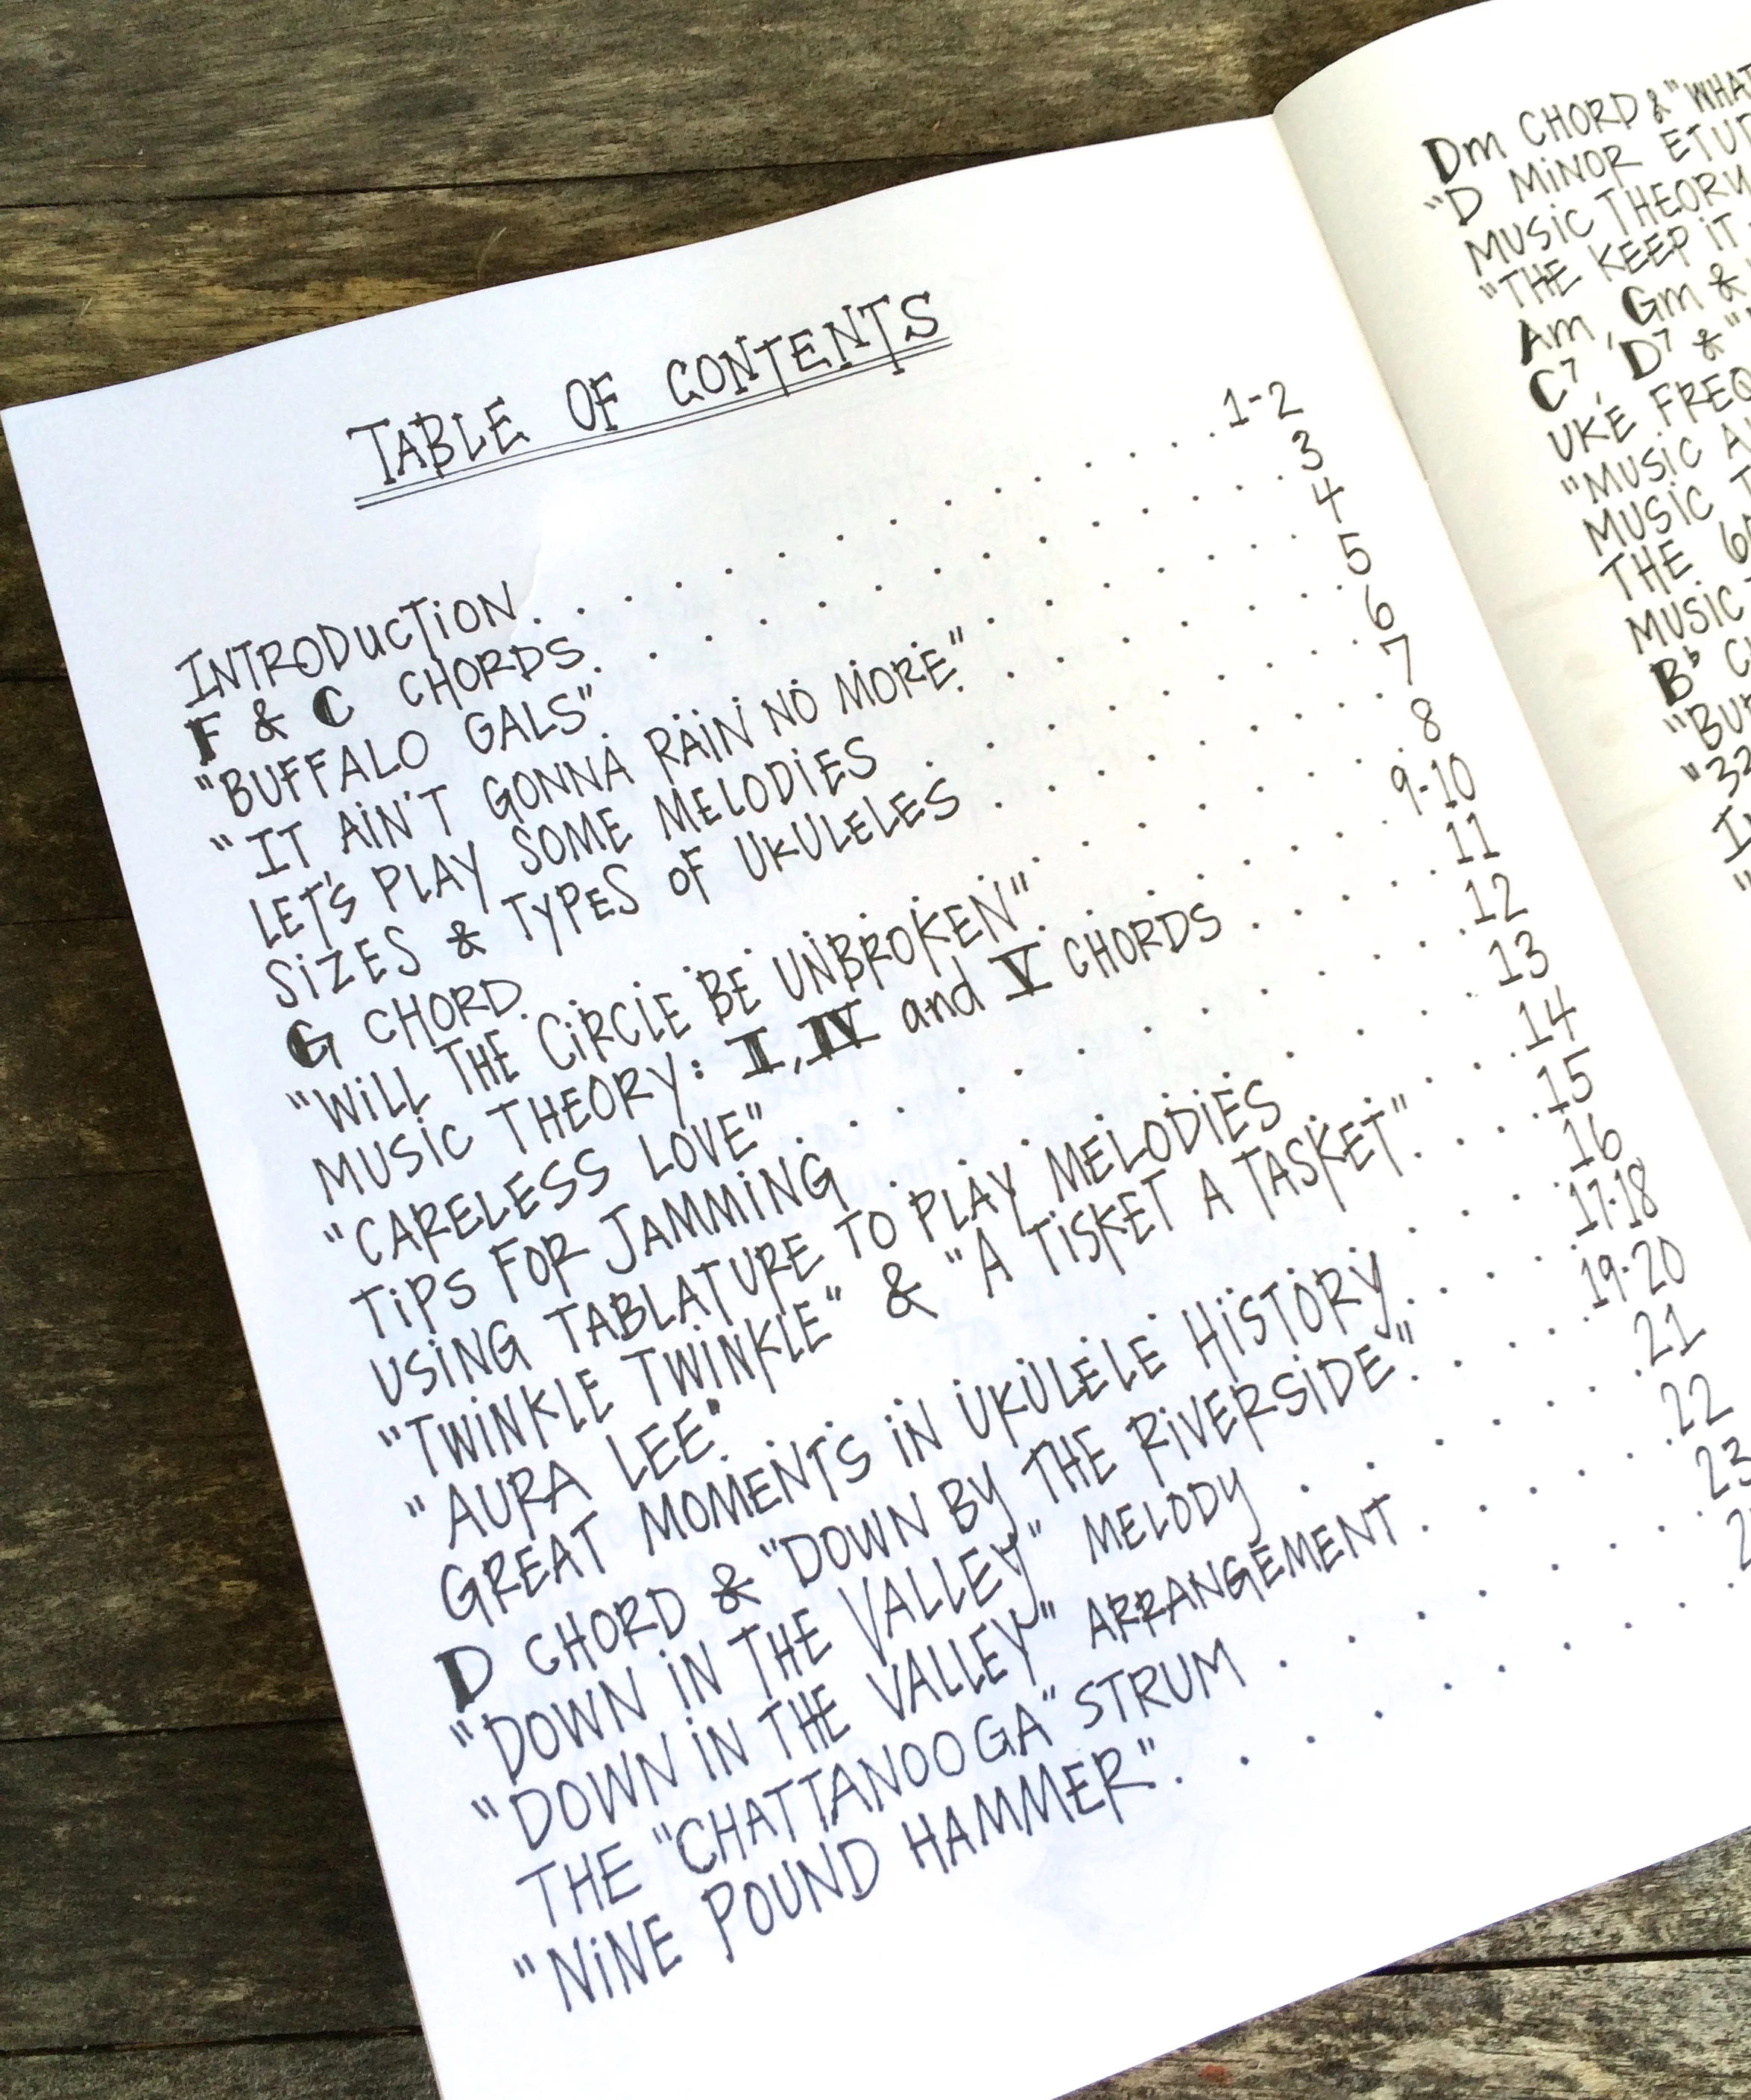 TABLE OF CONTENTS
INTRODUCTION. . . . . . . . . . . . 1-2
F & C CHORDS. . . . . . . . . . . . 3
"BUFFALO GALS". . . . . . . . . . . 4
"IT AIN'T GONNA RAIN NO MORE". . . . . . . 5
LET'S PLAY SOME MELODIES . . . . . . . 6
SIZES & TYPES OF UKULELES . . . . . . . 7
G CHORD. . . . . . . . . . . . 8
"WILL THE CIRCLE BE UNBROKEN". . . . . . . 9-10
MUSIC THEORY: I, IV and V CHORDS . . . . . 11
"CARELESS LOVE". . . . . . . . . . 12
TIPS FOR JAMMING . . . . . . . . . 13
USING TABLATURE TO PLAY MELODIES . . . . . 14
"TWINKLE TWINKLE" & "A TISKET A TASKET". . . . 15
"AURA LEE". . . . . . . . . . . . 16
GREAT MOMENTS IN UKULELE HISTORY. . . . . 17-18
D CHORD & "DOWN BY THE RIVERSIDE". . . . . 19-20
"DOWN IN THE VALLEY" MELODY . . . . . . 21
"DOWN IN THE VALLEY" ARRANGEMENT . . . . . 22
THE "CHATTANOOGA" STRUM . . . . . . . 23
"NINE POUND HAMMER". . . . . . . . .
Dm CHORD & "WHAT
"D MINOR
MUSIC THEORY
"THE KEEP IT
Am, Gm &
C7, D7 & "
UKE
"MUSIC
MUSIC
THE
MUSIC
B♭